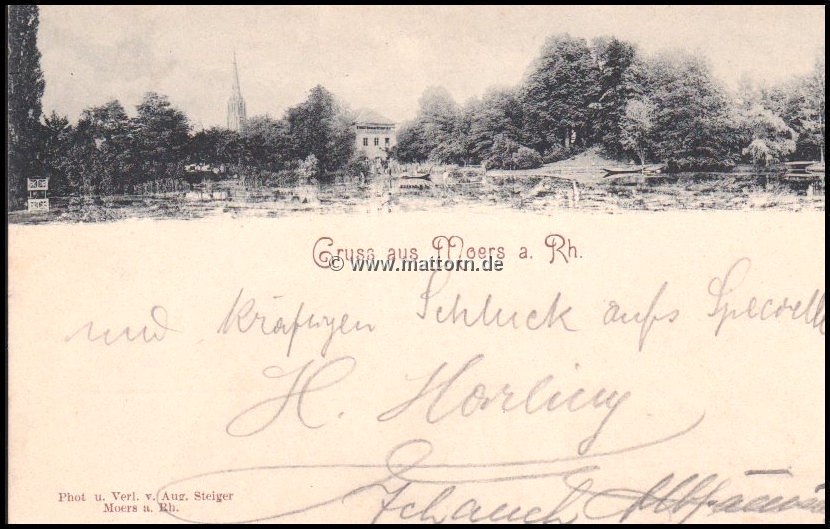 Gruss aus Moers a. Rh.
© www.mattorn.de
und kräftigen Schluck aufs
H.
Ich auch
Phot u. Verl. v. Aug. Steiger
Moers a. Rh.